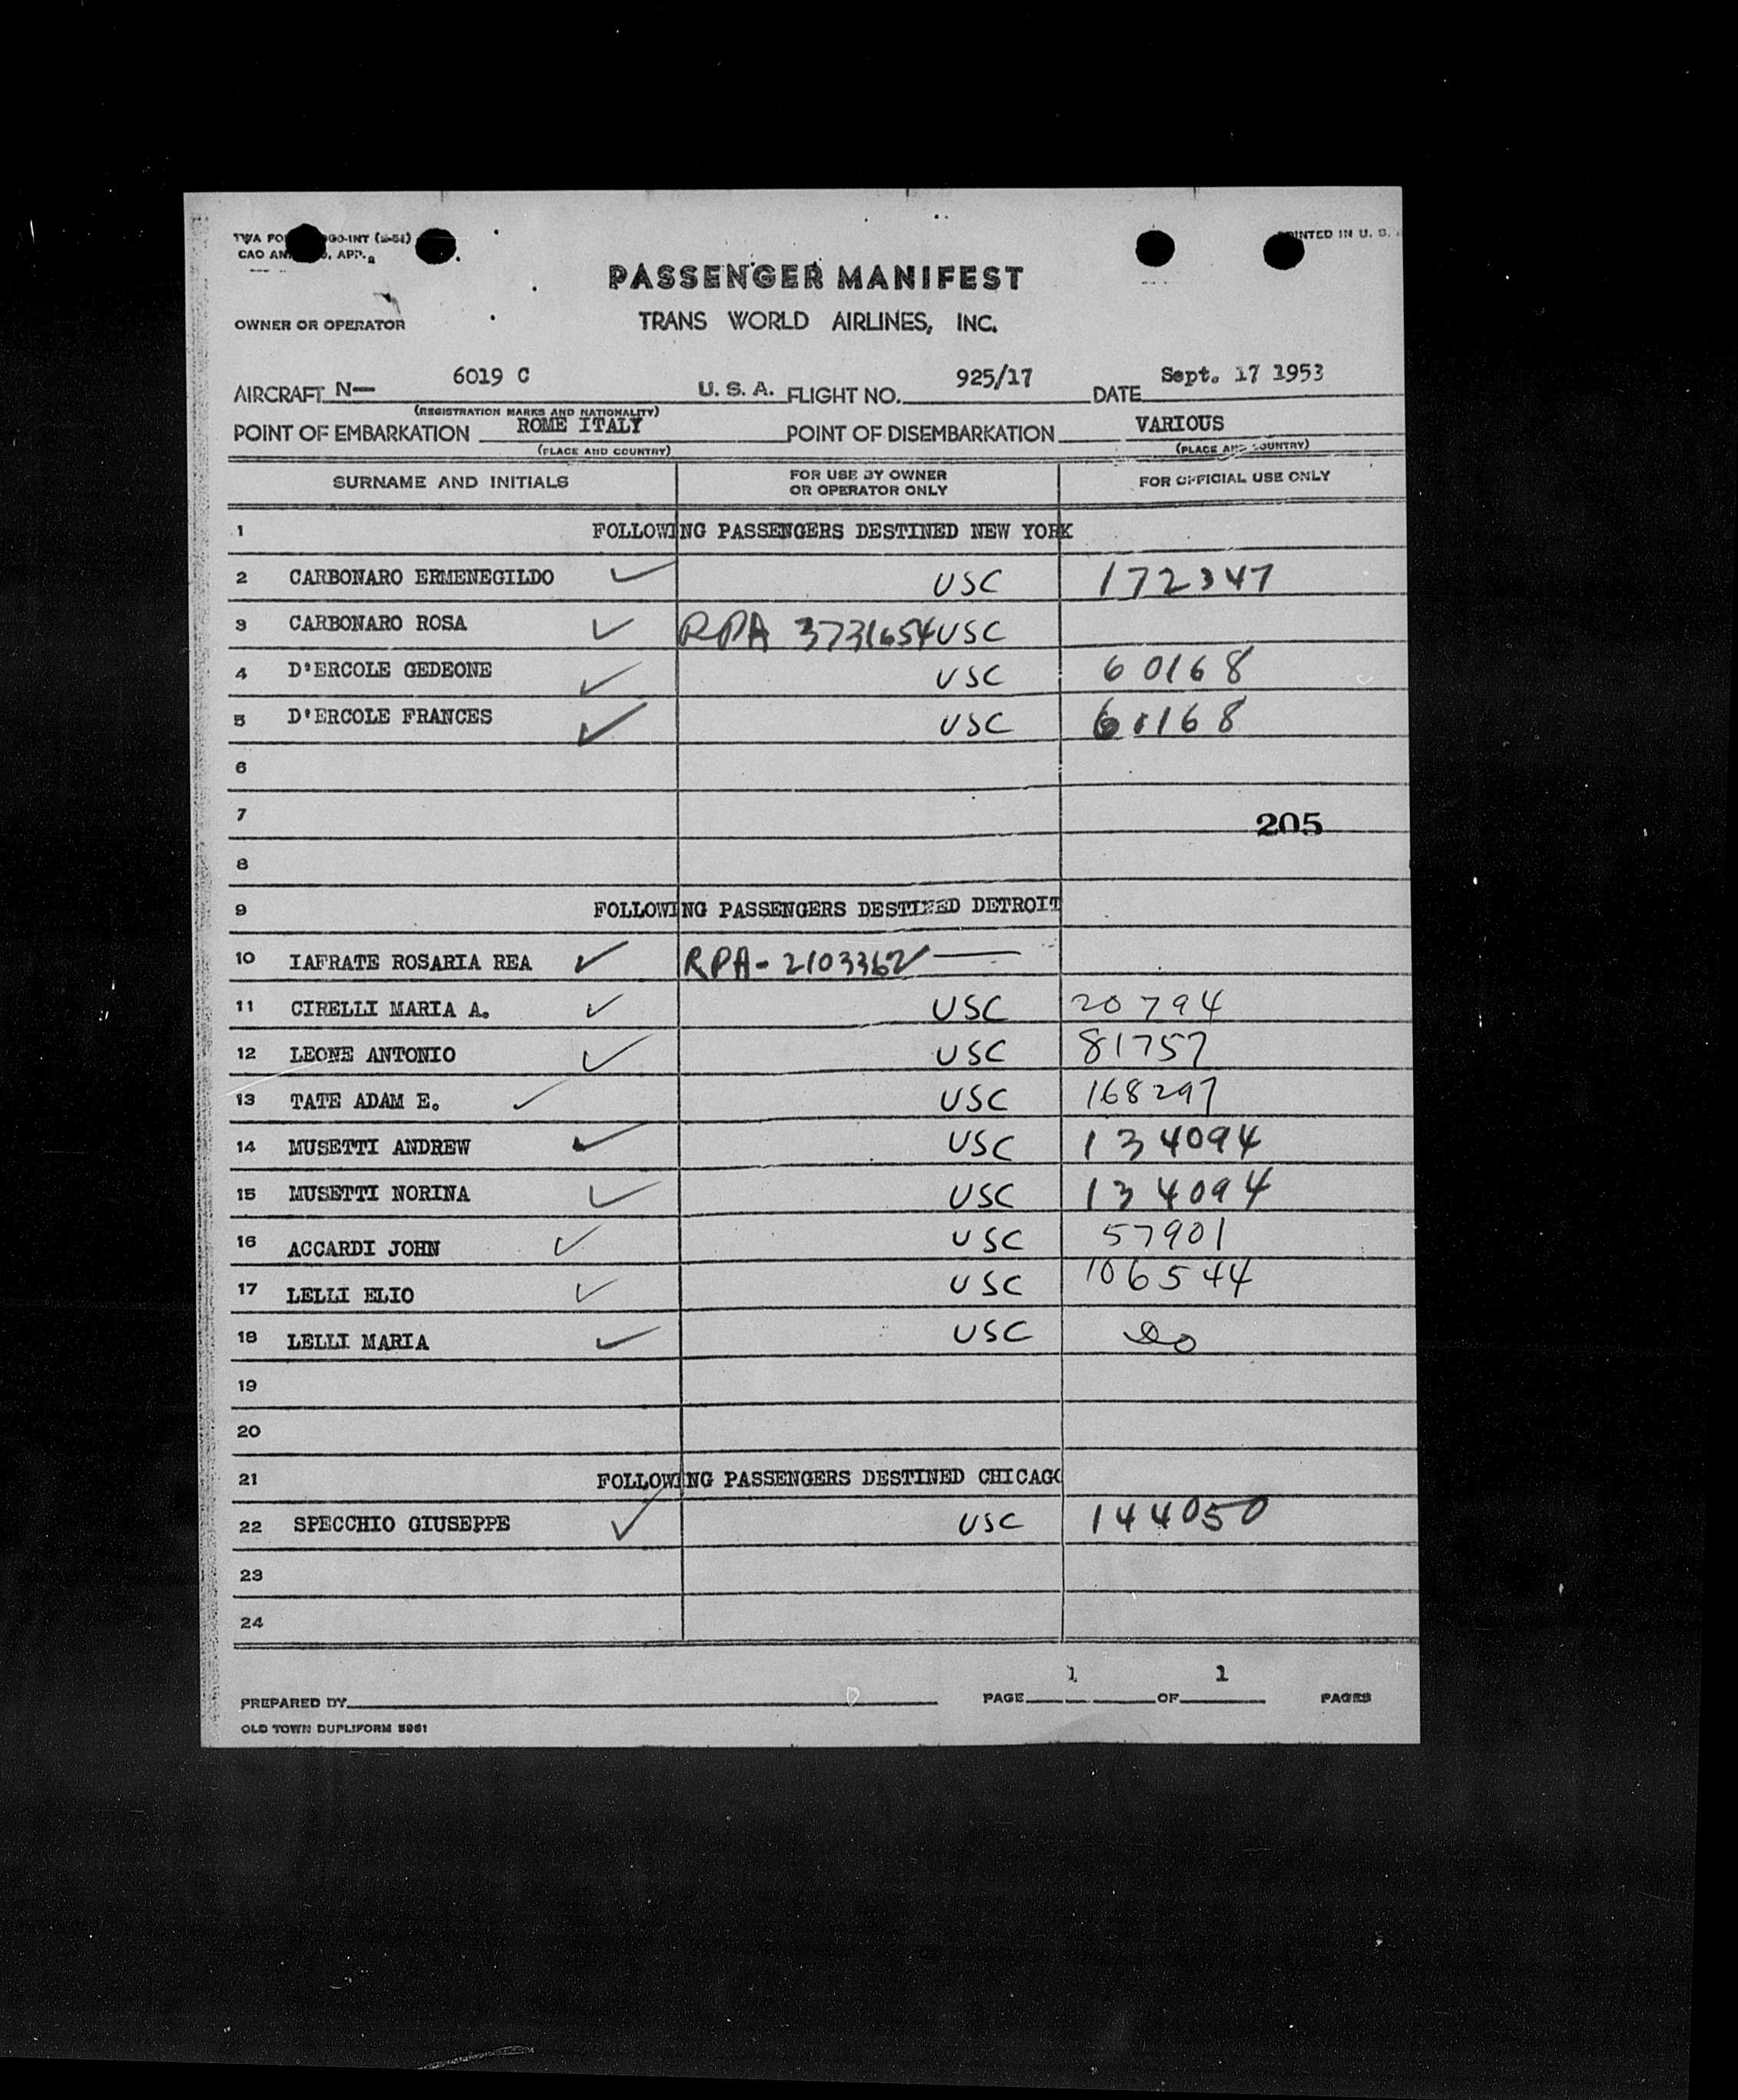 PRINTED IN U. S. A
CAO AN , APP. 2
PASSENGER MANIFEST
OWNER OR OPERATOR TRANS WORLD AIRLINES, INC.
AIRCRAFT N— 6019 C U. S. A. FLIGHT NO. 925/17 DATE Sept. 17 1953
(REGISTRATION MARKS AND NATIONALITY)
POINT OF EMBARKATION ROME ITALY POINT OF DISEMBARKATION VARIOUS
(PLACE AND COUNTRY) (PLACE AND COUNTRY)
SURNAME AND INITIALS FOR USE BY OWNER OR OPERATOR ONLY FOR OFFICIAL USE ONLY
1 FOLLOWING PASSENGERS DESTINED NEW YORK
2 CARBONARO ERMENEGILDO ✓ USC 172347
3 CARBONARO ROSA ✓ RPA 3731654 USC
4 D'ERCOLE GEDEONE ✓ USC 60168
5 D'ERCOLE FRANCES ✓ USC 60168
6
7 205
8
9 FOLLOWING PASSENGERS DESTINED DETROIT
10 IAFRATE ROSARIA REA ✓ RPA-2103362 —
11 CIRELLI MARIA A. ✓ USC 20794
12 LEONE ANTONIO ✓ USC 81757
13 TATE ADAM E. ✓ USC 168297
14 MUSETTI ANDREW ✓ USC 134094
15 MUSETTI NORINA ✓ USC 134094
16 ACCARDI JOHN ✓ USC 57901
17 LELLI ELIO ✓ USC 106544
18 LELLI MARIA ✓ USC Do
19
20
21 FOLLOWING PASSENGERS DESTINED CHICAGO
22 SPECCHIO GIUSEPPE ✓ USC 144050
23
24
PREPARED BY PAGE 1 OF 1 PAGES
OLD TOWN DUPLIFORM 5961